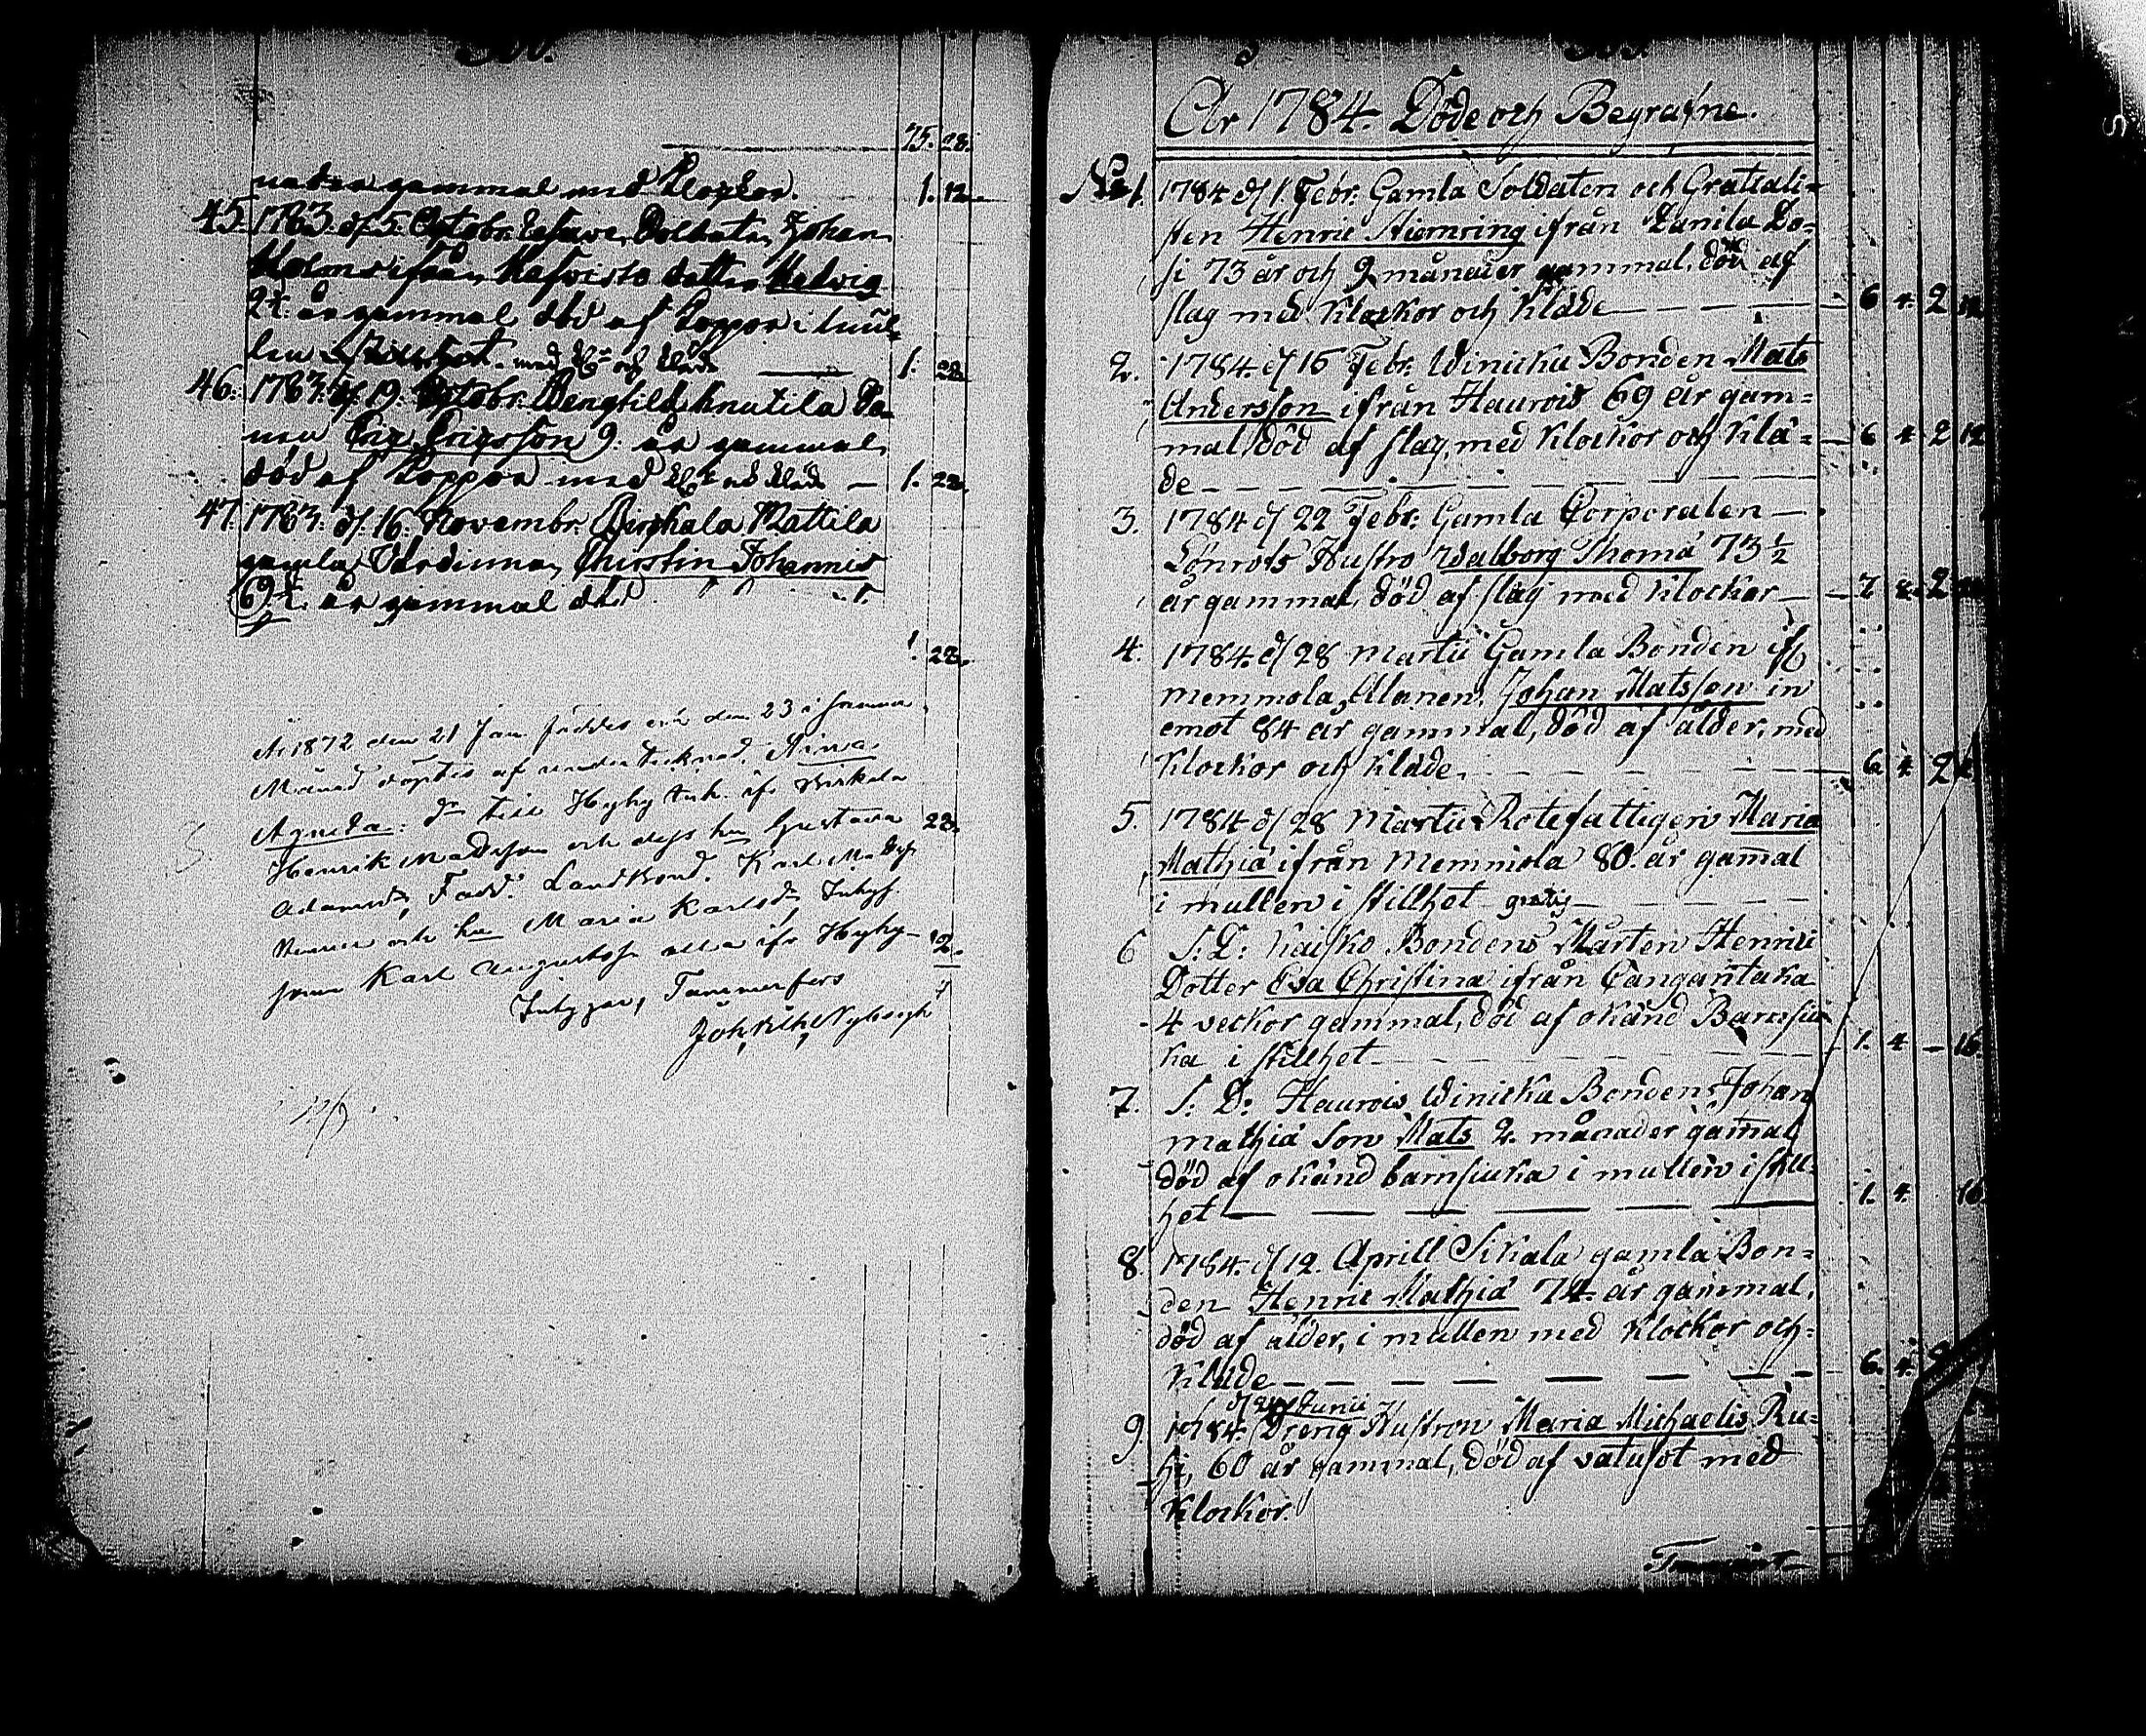 75. 28.
nader gammal med Klockor. 1. 12.
45. 1783. d/ 5. Octobr. Soldaten Johan
Holms ifrån dotter Hedwig
2 år gammal död af Koppor i mul-
len i med Kl. och kläde 1. 22.
46. 1783. d/ 19. Octobr. Knutila So-
nen Eric Ericsson 9. år gammal
död af Koppor med kl. och kläde 1. 22.
47. 1783. d/. 16. Novembr. Birkala Mattila
gamla Värdinnan Christin Johannis
69 år gammal död
1. 28.
År 1872 den 21 Jan. föddes och den 23 i samma
Månad döptes af undertecknad, Aina
Agneta: Dr till Hyhy ifr Birkala
Henrik och dess hu Gustava
Adamsdr, Fadd. Landbond. Karl
och hu Maria Karlsd.
Karl Augustss alla ifr Hyhy
Tammerfors
Joh. Nybergh
År 1784. Döde och Begrafne.
No 1. 1784 d/ 1. Febr. Gamla Soldaten och Gratiali=
sten Henric Stiernring ifrån Danila Do=
si 73 år och 9 månader gammal, död af
slag med klockor och kläde 6 4. 2 12
2. 1784. d/ 15 Febr. Winicka Bonden Mats
Andersson ifrån Haurois 69 år gam=
mal död af slag, med klockor och klä= 6 4 2 12
de
3. 1784 d/ 22 Febr. Gamla Corporalen
Lönrots Hustro Walborg Thomæ 73 1/2
år gammal, död af slag med klockor 7 8. 2
4. 1784. d/ 28 Martii Gamla Bonden ifr
Memmola Alanen, Johan Matsson in
emot 84 år gammal, död af ålder, med
klockor och kläde. 6. 4. 2
5. 1784 d/ 28 Martii Rotefattigen Maria
Mathiæ ifrån Memmola 80. år gamal
i mullen i stillhet gratis
6 S. D. Kaisko Bondens Mårten Henrici
Dotter Eva Christina ifrån Cangantaka
4 veckor gammal, död af okänd Barnsiu
ka i stillhet 1. 4. 16.
7. S. D. Haurois Winicka Bondens Johan
Mathiæ Son Mats 2. månader gamal
död af okänd barnsiuka i mullen i still=
het 1. 4. 16.
8. 1784. d/ 12. Aprill Sikala gamla Bon=
den Henric Mathiæ 74. år gammal,
död af ålder, i mullen med klockor och
kläde 6. 4.
9. 1784. Junii Dreng Hustron Maria Michaelis Ru=
hi, 60 år gammal, död af vatusot med
klockor.